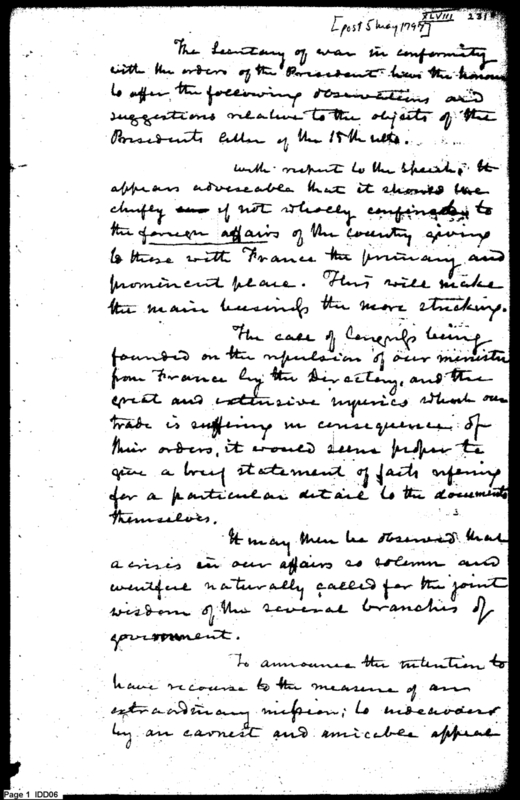 XLVIII 231
[post 5 May 1797]
The Secretary of war in conformity
with the orders of the President has the honour
to offer the following observations and
suggestions relative to the objects of the
Presidents letter of the 15th ulto.
With respect to the Speech, It
appears adviseable that it should be
chiefly if not wholly confined to
the foreign affairs of the country giving
to those with France the primary and
prominent place. This will make
the main business the more striking.
The case of Congress being
founded on the repulsion of our minister
from France by the Directory, and the
great and extensive injuries which our
trade is suffering in consequence of
their orders, it would seem proper to
give a brief statement of facts refering
for a particular detail to the documents
themselves.
It may then be observed that
a crisis in our affairs so solemn and
eventful naturally called for the joint
wisdom of the several branches of
government.
To announce the intention to
have recourse to the measure of an
extraordinary mission; to endeavour
by an earnest and amicable appeal
Page 1 IDD06